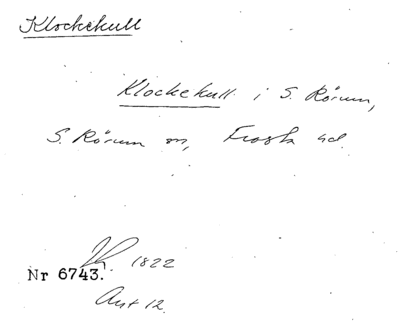 Klockekull
Klockekull i S. Rörum,
S. Rörum sn, Frosta hd.
1822
Nr 6743.
Akt 12.